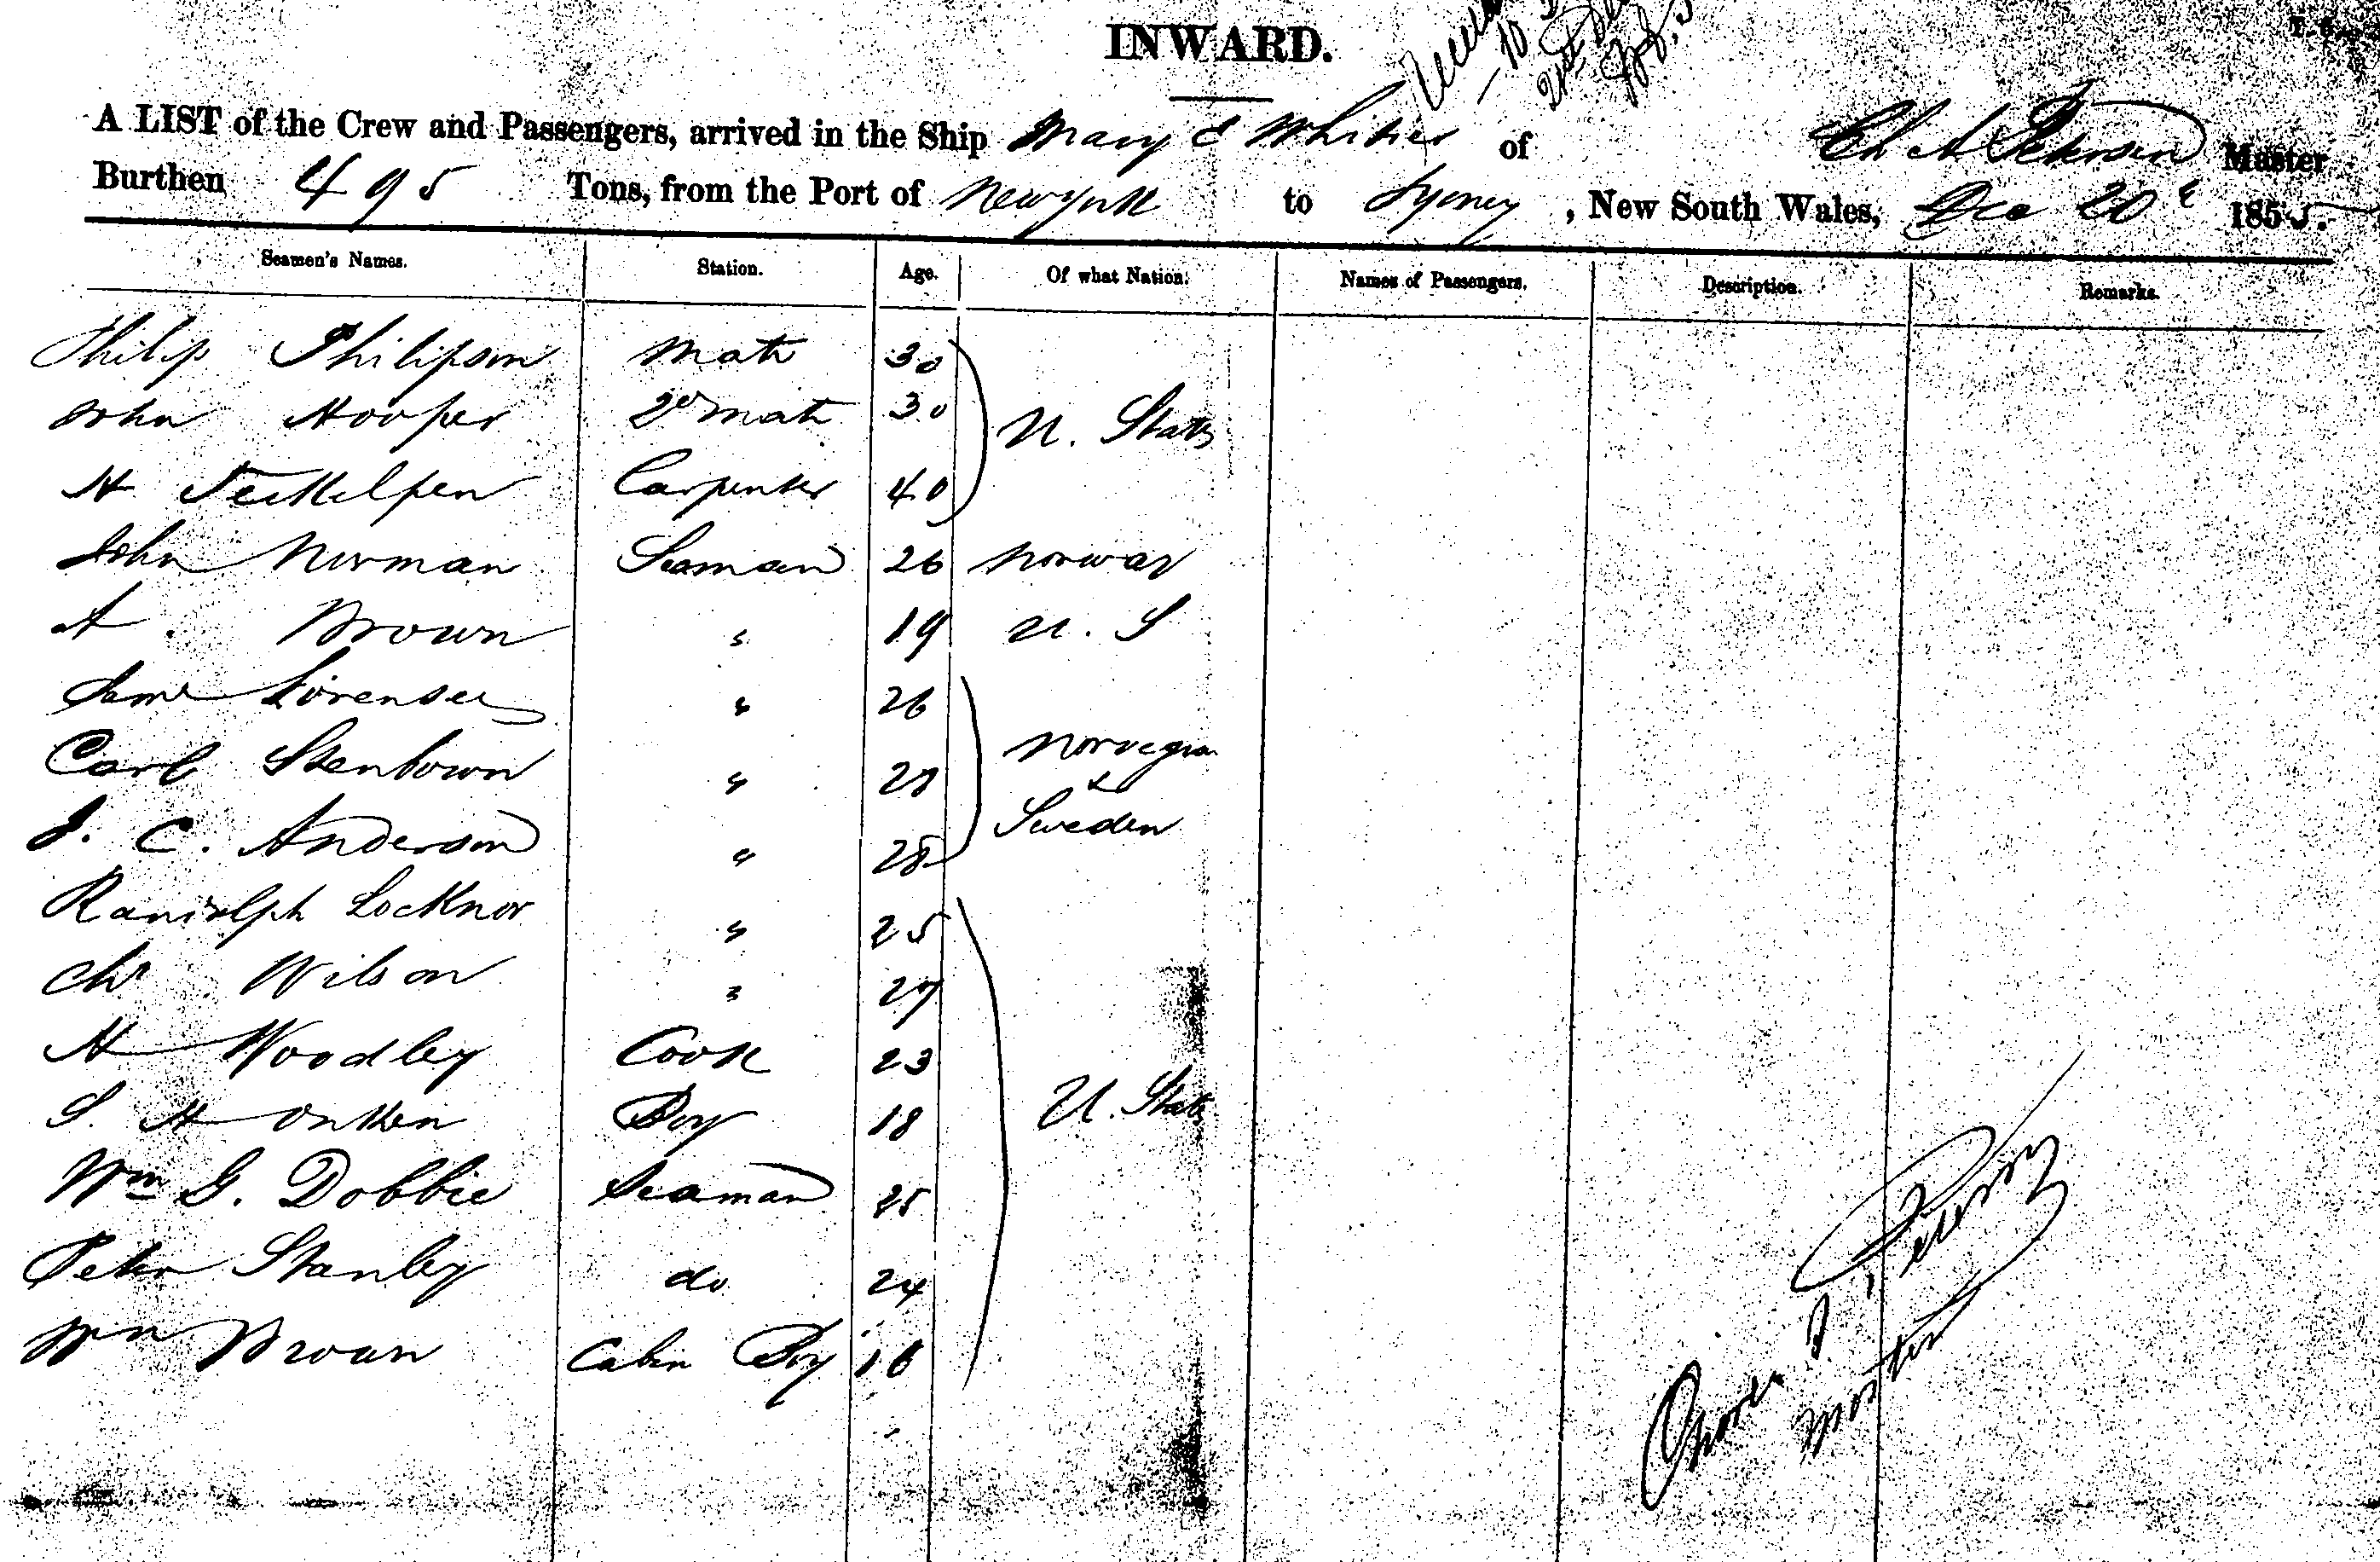 INWARD.
A LIST of the Crew and Passengers, arrived in the Ship Mary E Whitier of Ch A Peterson Master
Burthen 495 Tons, from the Port of New York to Sydney, New South Wales, Dec 20th 1855.
Seamen's Names. Station. Age. Of what Nation. Names of Passengers. Description. Remarks.
Philip Philipson Mate 30
John Hooper 2d mate 30 U. States
H Carpenter 40
John Norman Seaman 26 Norway
A. Brown " 19 U. S
Lorensen " 26
Carl Stenbown " 28 Norvegian
& Sweden
J. C. Anderson " 28
Randolph Locknor " 25
Chs Wilson " 27
H Woodley Cook 23
S. H Onken Boy 18 U. State
Wm G. Dobbie Seaman 25
Peter Stanley do 24
Wm Brown Cabin Boy 16
Peterson
Master